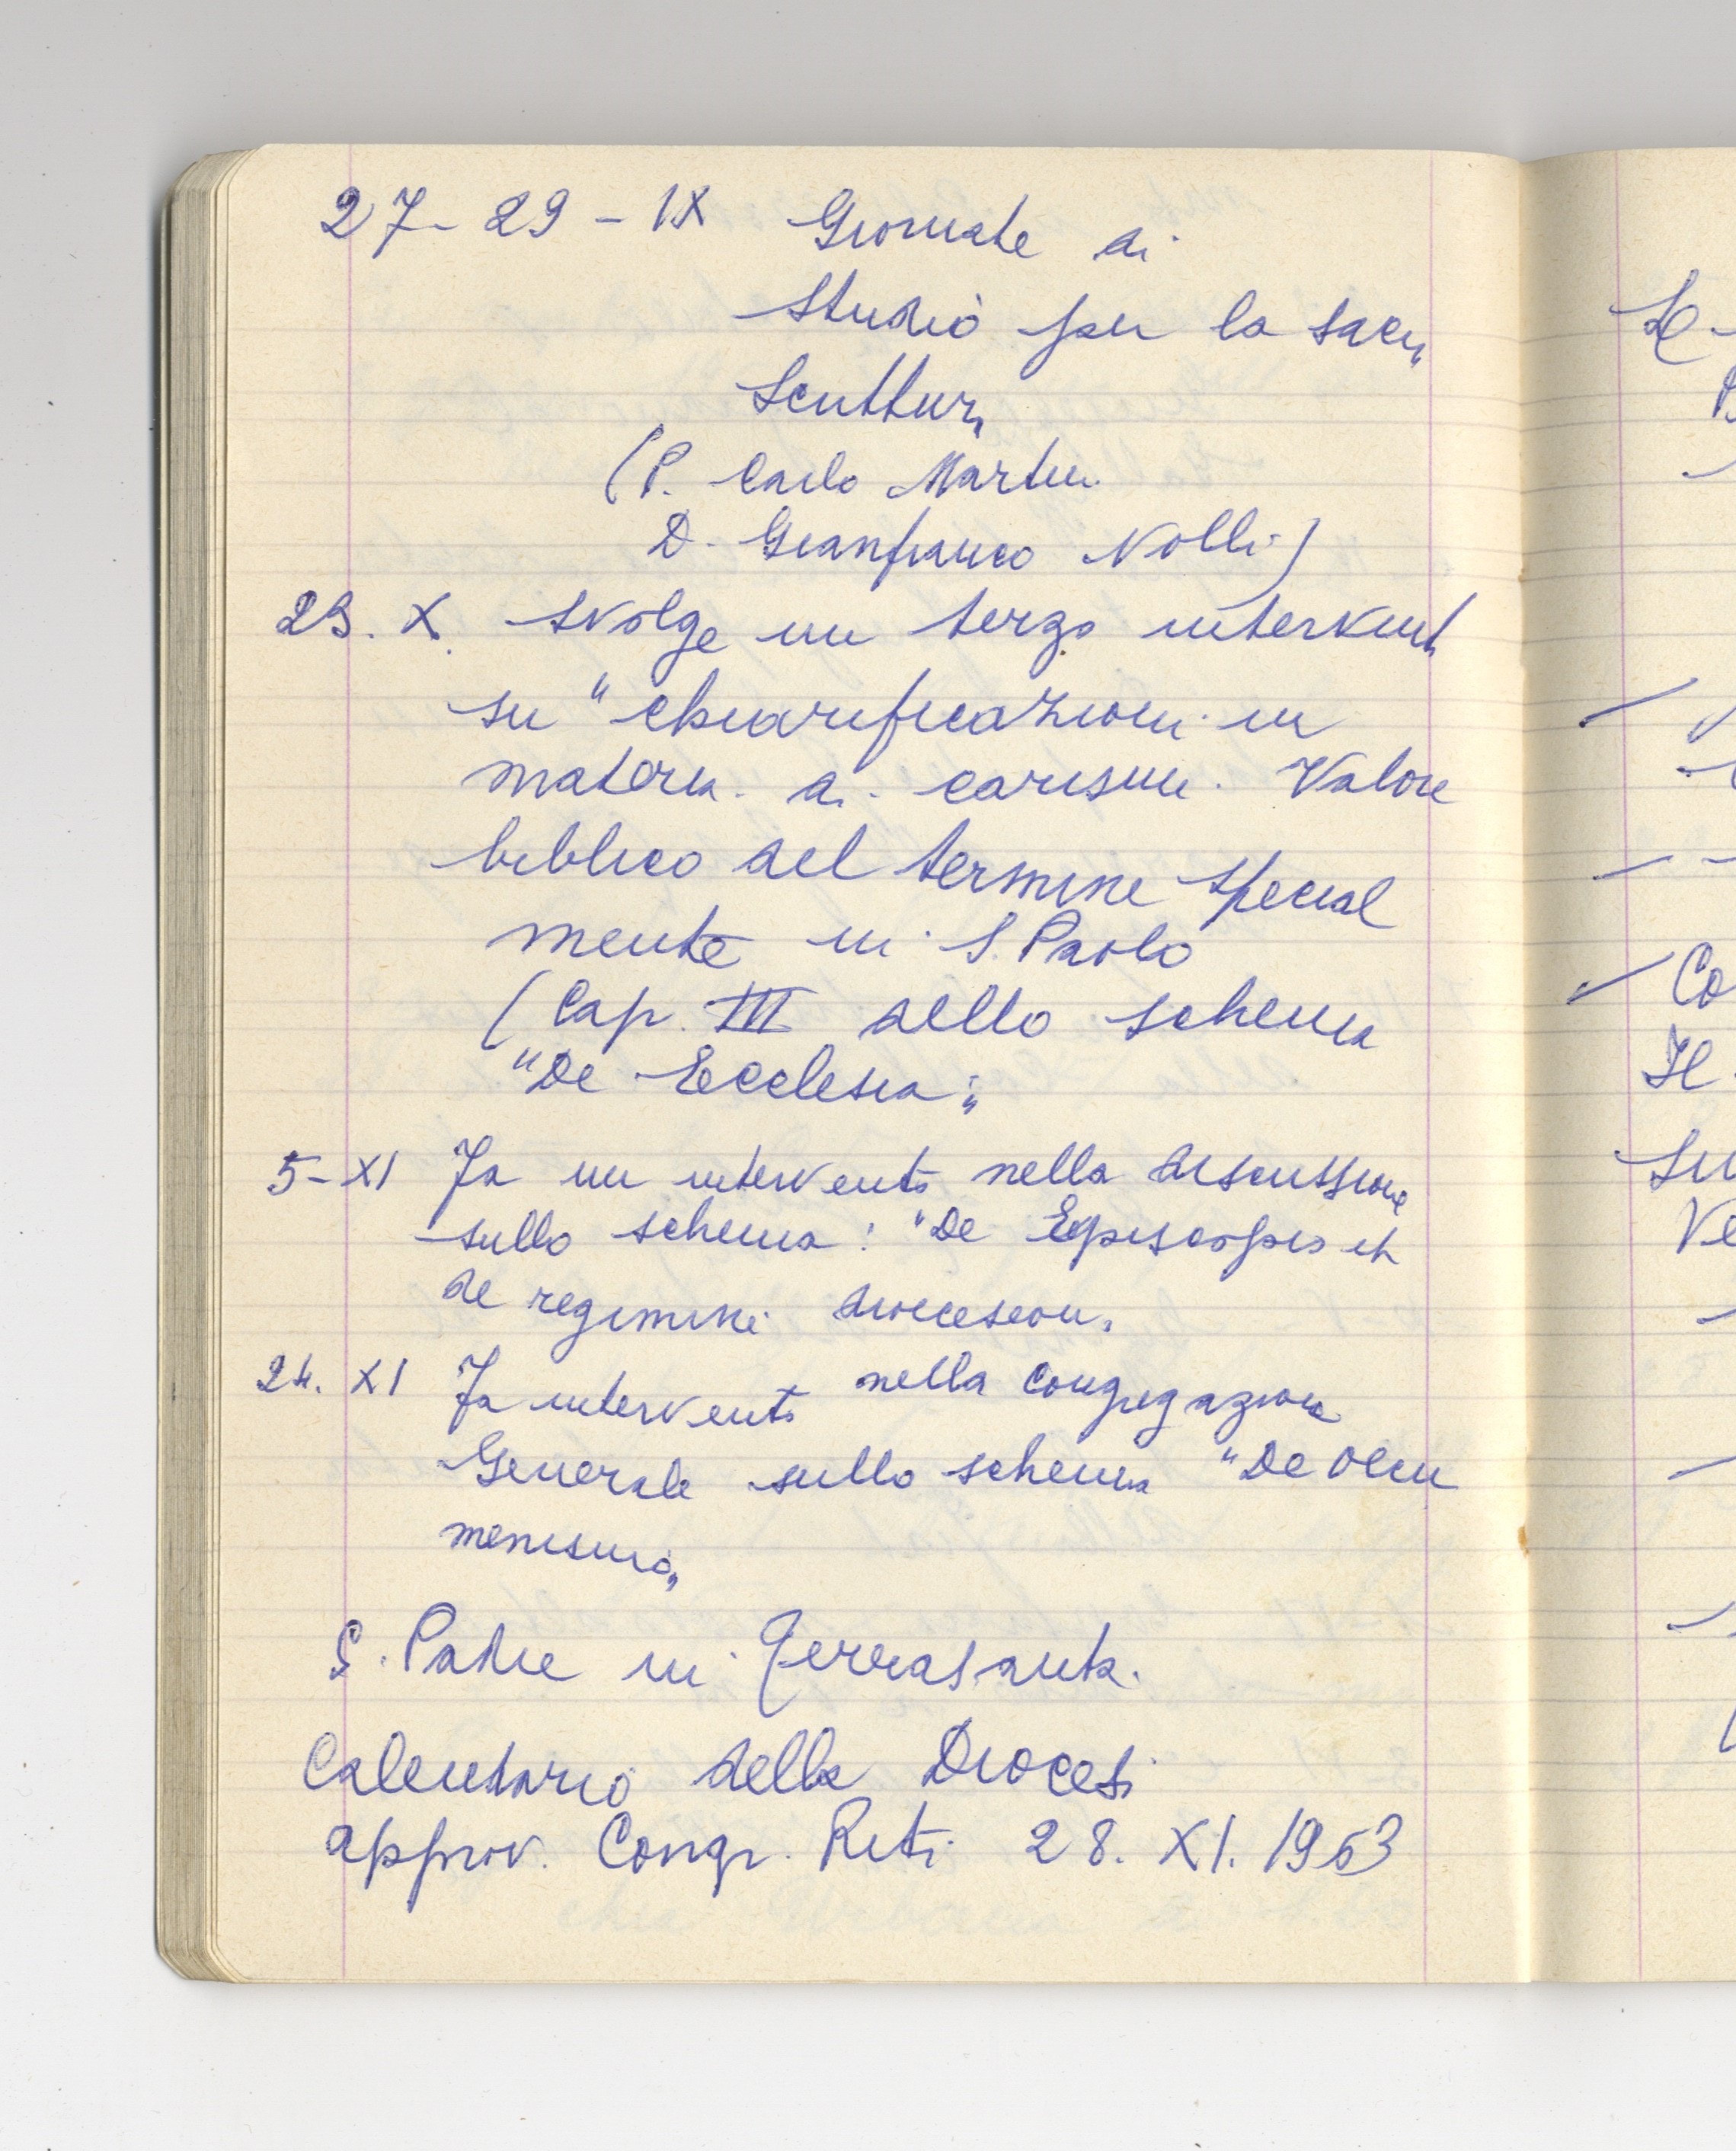 27-29-IX Giornate di
studio per la sacra
Scrittura
(P. Carlo Martini
D. Gianfranco Nolli)
23. X. svolge un terzo intervento
su "chiarificazioni in
materia di carismi. Valore
biblico del termine special
mente in S. Paolo
(Cap. III dello schema
"De Ecclesia„
5-XI Fa un intervento nella discussione
sullo schema: "De Episcopis et
de regimine dioceseon„
24. XI Fa intervento nella Congregazione
Generale sullo schema "De Oecu
menismo„
S. Padre in Terrasanta.
Calendario della Diocesi
approv. Congr. Riti 28. XI. 1963
Il
Co
Il
Su
Ve